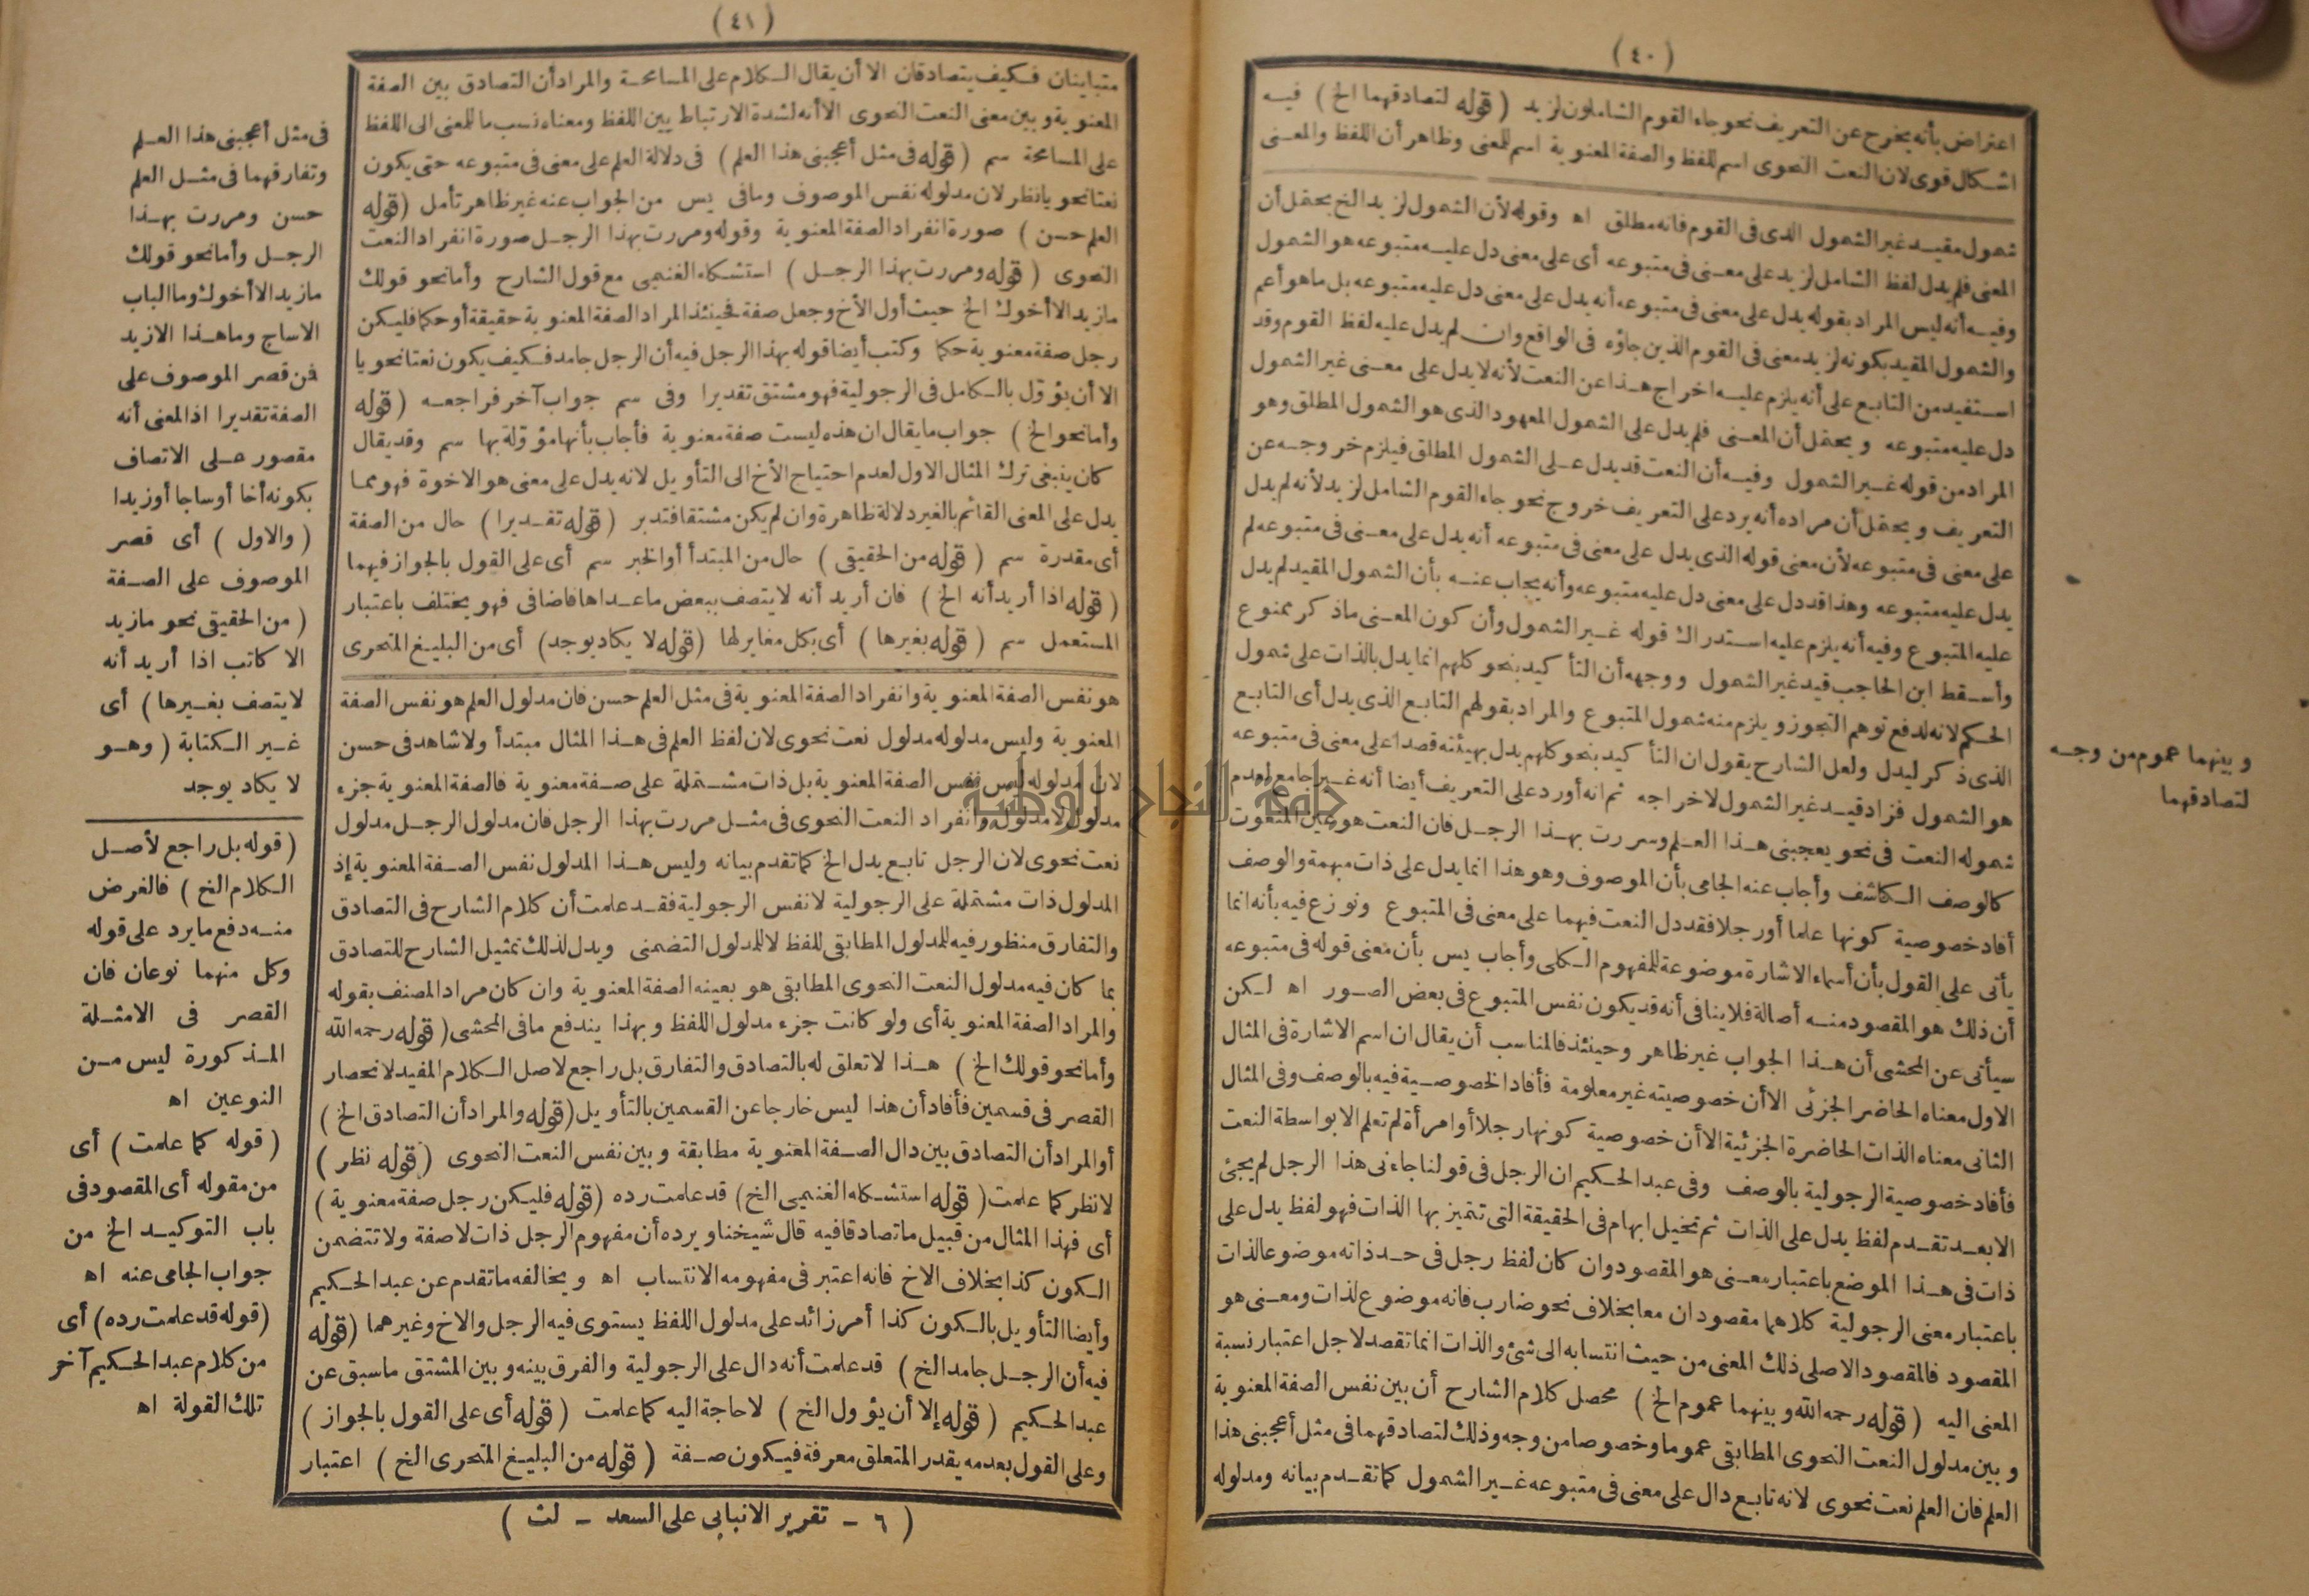 (٤٠)
اعتراض بأنه يخرج عن التعريف نحو جاء القوم الشاملون لزيد (قوله لتصادقهما الخ) فيه
اشكال قوى لان النعت النحوى اسم للفظ والصفة المعنوية اسم للمعنى وظاهر أن اللفظ والمعنى
شمول مقيد غير الشمول الذى فى القوم فانه مطلق اه وقوله لأن الشمول لزيد الخ يحتمل أن
المعنى فلم يدل لفظ الشامل لزيد على معنى فى متبوعه أى على معنى دل عليه متبوعه هو الشمول
وفيه أنه ليس المراد بقوله يدل على معنى فى متبوعه أنه يدل على معنى دل عليه متبوعه بل ما هو أعم
والشمول المقيد بكونه لزيد معنى فى القوم الذين جاؤه فى الواقع وان لم يدل عليه لفظ القوم وقد
استفيد من التابع على أنه يلزم عليه اخراج هذا عن النعت لأنه لا يدل على معنى غير الشمول
دل عليه متبوعه ويحتمل أن المعنى فلم يدل على الشمول المعهود الذى هو الشمول المطلق وهو
المراد من قوله غير الشمول وفيه أن النعت قد يدل على الشمول المطلق فيلزم خروجه عن
التعريف ويحتمل أن مراده أنه يرد على التعريف خروج نحو جاء القوم الشامل لزيد لأنه لم يدل
على معنى فى متبوعه لأن معنى قوله الذى يدل على معنى فى متبوعه أنه يدل على معنى فى متبوعه لم
يدل عليه متبوعه وهذا قد دل على معنى دل عليه متبوعه وأنه يجاب عنه بأن الشمول المقيد لم يدل
عليه المتبوع وفيه أنه يلزم عليه استدراك قوله غير الشمول وأن كون المعنى ماذكر ممنوع
وأسقط ابن الحاجب قيد غير الشمول ووجهه أن التأكيد بنحو كلهم انما يدل بالذات على شمول
الحكم لانه لدفع توهم التجوز ويلزم منه شمول المتبوع والمراد بقولهم التابع الذى يدل أى التابع
الذى ذكر ليدل ولعل الشارح يقول ان التأكيد بنحو كلهم يدل بهيئته قصدا على معنى فى متبوعه
هو الشمول فزاد قيد غير الشمول لاخراجه ثم انه أورد على التعريف أيضا أنه غير جامع لعدم
شموله النعت فى نحو يعجبنى هذا العلم ومررت بهذا الرجل فان النعت هو عين المنعوت
كالوصف الكاشف وأجاب عنه الجامى بأن الموصوف وهو هذا انما يدل على ذات مبهمة والوصف
أفاد خصوصية كونها علما أو رجلا فقد دل النعت فيهما على معنى فى المتبوع ونوزع فيه بأنه انما
يأتى على القول بأن أسماء الاشارة موضوعة للمفهوم الكلى وأجاب يس بأن معنى قوله فى متبوعه
أن ذلك هو المقصود منه أصالة فلا ينافى أنه قد يكون نفس المتبوع فى بعض الصور اه لكن
سيأتى عن المحشى أن هذا الجواب غير ظاهر وحينئذ فالمناسب أن يقال ان اسم الاشارة فى المثال
الاول معناه الحاضر الجزئى الا أن خصوصيته غير معلومة فأفاد الخصوصية فيه بالوصف وفى المثال
الثانى معناه الذات الحاضرة الجزئية الا أن خصوصية كونها رجلا أو امرأة لم تعلم الا بواسطة النعت
فأفاد خصوصية الرجولية بالوصف وفى عبد الحكيم ان الرجل فى قولنا جاءنى هذا الرجل لم يجئ
الا بعد تقدم لفظ يدل على الذات ثم تخيل ابهام فى الحقيقة التى تتميز بها الذات فهو لفظ يدل على
ذات فى هذا الموضع باعتبار معنى هو المقصود وان كان لفظ رجل فى حد ذاته موضوعا لذات
باعتبار معنى الرجولية كلاهما مقصودان معا بخلاف نحو ضارب فانه موضوع لذات ومعنى هو
المقصود فالمقصود الاصلى ذلك المعنى من حيث انتسابه الى شئ والذات انما تقصد لاجل اعتبار نسبة
المعنى اليه (قوله رحمه الله وبينهما عموم الخ) محصل كلام الشارح أن بين نفس الصفة المعنوية
وبين مدلول النعت النحوى المطابقى عموما وخصوصا من وجه وذلك لتصادقهما فى مثل أعجبنى هذا
العلم فان العلم نعت نحوى لانه تابع دال على معنى فى متبوعه غير الشمول كما تقدم بيانه ومدلوله
وبينهما عموم من وجه
لتصادقهما
(٤١)
متباينان فكيف يتصادقان الا أن يقال الكلام على المسامحة والمراد أن التصادق بين الصفة
المعنوية وبين معنى النعت النحوى الا أنه لشدة الارتباط بين اللفظ ومعناه نسب ما للمعنى الى اللفظ
على المسامحة سم (قوله فى مثل أعجبنى هذا العلم) فى دلالة العلم على معنى فى متبوعه حتى يكون
نعتا نحويا نظر لان مدلوله نفس الموصوف وما فى يس من الجواب عنه غير ظاهر تأمل (قوله
العلم حسن) صورة انفراد الصفة المعنوية وقوله ومررت بهذا الرجل صورة انفراد النعت
النحوى (قوله ومررت بهذا الرجل) استشكله الغنيمى مع قول الشارح وأما نحو قولك
ما زيد الا أخوك الخ حيث أول الأخ وجعل صفة فحينئذ المراد الصفة المعنوية حقيقة أو حكما فليكن
رجل صفة معنوية حكما وكتب أيضا قوله بهذا الرجل فيه أن الرجل جامد فكيف يكون نعتا نحويا
الا أن يؤوّل بالكامل فى الرجولية فهو مشتق تقديرا وفى سم جواب آخر فراجعه (قوله
وأما نحو الخ) جواب ما يقال ان هذه ليست صفة معنوية فأجاب بأنها مؤوّلة بها سم وقد يقال
كان ينبغى ترك المثال الاول لعدم احتياج الأخ الى التأويل لانه يدل على معنى هو الاخوة فهو مما
يدل على المعنى القائم بالغير دلالة ظاهرة وان لم يكن مشتقا فتدبر (قوله تقديرا) حال من الصفة
أى مقدرة سم (قوله من الحقيقى) حال من المبتدأ أو الخبر سم أى على القول بالجواز فيهما
(قوله اذا أريد أنه الخ) فان أريد أنه لا يتصف ببعض ما عداها فاضافى فهو يختلف باعتبار
المستعمل سم (قوله بغيرها) أى بكل مغاير لها (قوله لا يكاد يوجد) أى من البليغ المتحرى
هو نفس الصفة المعنوية وانفراد الصفة المعنوية فى مثل العلم حسن فان مدلول العلم هو نفس الصفة
المعنوية وليس مدلوله مدلول نعت نحوى لان لفظ العلم فى هذا المثال مبتدأ ولا شاهد فى حسن
لان مدلوله ليس نفس الصفة المعنوية بل ذات مشتملة على صفة معنوية فالصفة المعنوية جزء
مدلول لا مدلوله وانفراد النعت النحوى فى مثل مررت بهذا الرجل فان مدلول الرجل مدلول
نعت نحوى لان الرجل تابع يدل الخ كما تقدم بيانه وليس هذا المدلول نفس الصفة المعنوية إذ
المدلول ذات مشتملة على الرجولية لا نفس الرجولية فقد علمت أن كلام الشارح فى التصادق
والتفارق منظور فيه للمدلول المطابقى للفظ لا للمدلول التضمنى ويدل لذلك تمثيل الشارح للتصادق
بما كان فيه مدلول النعت النحوى المطابقى هو بعينه الصفة المعنوية وان كان مراد المصنف بقوله
والمراد الصفة المعنوية أى ولو كانت جزء مدلول اللفظ وبهذا يندفع ما فى المحشى (قوله رحمه الله
وأما نحو قولك الخ) هذا لا تعلق له بالتصادق والتفارق بل راجع لاصل الكلام المفيد لانحصار
القصر فى قسمين فأفاد أن هذا ليس خارجا عن القسمين بالتأويل (قوله والمراد أن التصادق الخ)
أو المراد أن التصادق بين دال الصفة المعنوية مطابقة وبين نفس النعت النحوى (قوله نظر)
لا نظر كما علمت (قوله استشكله الغنيمى الخ) قد علمت رده (قوله فليكن رجل صفة معنوية)
أى فهذا المثال من قبيل ما تصادقا فيه قال شيخنا ويرده أن مفهوم الرجل ذات لا صفة ولا تتضمن
الكون كذا بخلاف الاخ فانه اعتبر فى مفهومه الانتساب اه ويخالفه ما تقدم عن عبد الحكيم
وأيضا التأويل بالكون كذا أمر زائد على مدلول اللفظ يستوى فيه الرجل والاخ وغيرهما (قوله
فيه أن الرجل جامد الخ) قد علمت أنه دال على الرجولية والفرق بينه وبين المشتق ما سبق عن
عبد الحكيم (قوله إلا أن يؤول الخ) لا حاجة اليه كما علمت (قوله أى على القول بالجواز)
وعلى القول بعدمه يقدر المتعلق معرفة فيكون صفة (قوله من البليغ المتحرى الخ) اعتبار
(٦ - تقرير الانبابى على السعد - لث)
فى مثل أعجبنى هذا العلم
وتفارقهما فى مثل العلم
حسن ومررت بهذا
الرجل وأما نحو قولك
ما زيد الا أخوك وما الباب
الا ساج وما هذا الا زيد
فمن قصر الموصوف على
الصفة تقديرا اذ المعنى أنه
مقصور على الاتصاف
بكونه أخا أو ساجا أو زيدا
(والاول) أى قصر
الموصوف على الصفة
(من الحقيقى نحو ما زيد
الا كاتب اذا أريد أنه
لا يتصف بغيرها) أى
غير الكتابة (وهو
لا يكاد يوجد
(قوله بل راجع لأصل
الكلام الخ) فالغرض
منه دفع ما يرد على قوله
وكل منهما نوعان فان
القصر فى الامثلة
المذكورة ليس من
النوعين اه
(قوله كما علمت) أى
من مقوله أى المقصود فى
باب التوكيد الخ من
جواب الجامى عنه اه
(قوله قد علمت رده) أى
من كلام عبد الحكيم آخر
تلك القولة اه
جامعة النجاح الوطنية